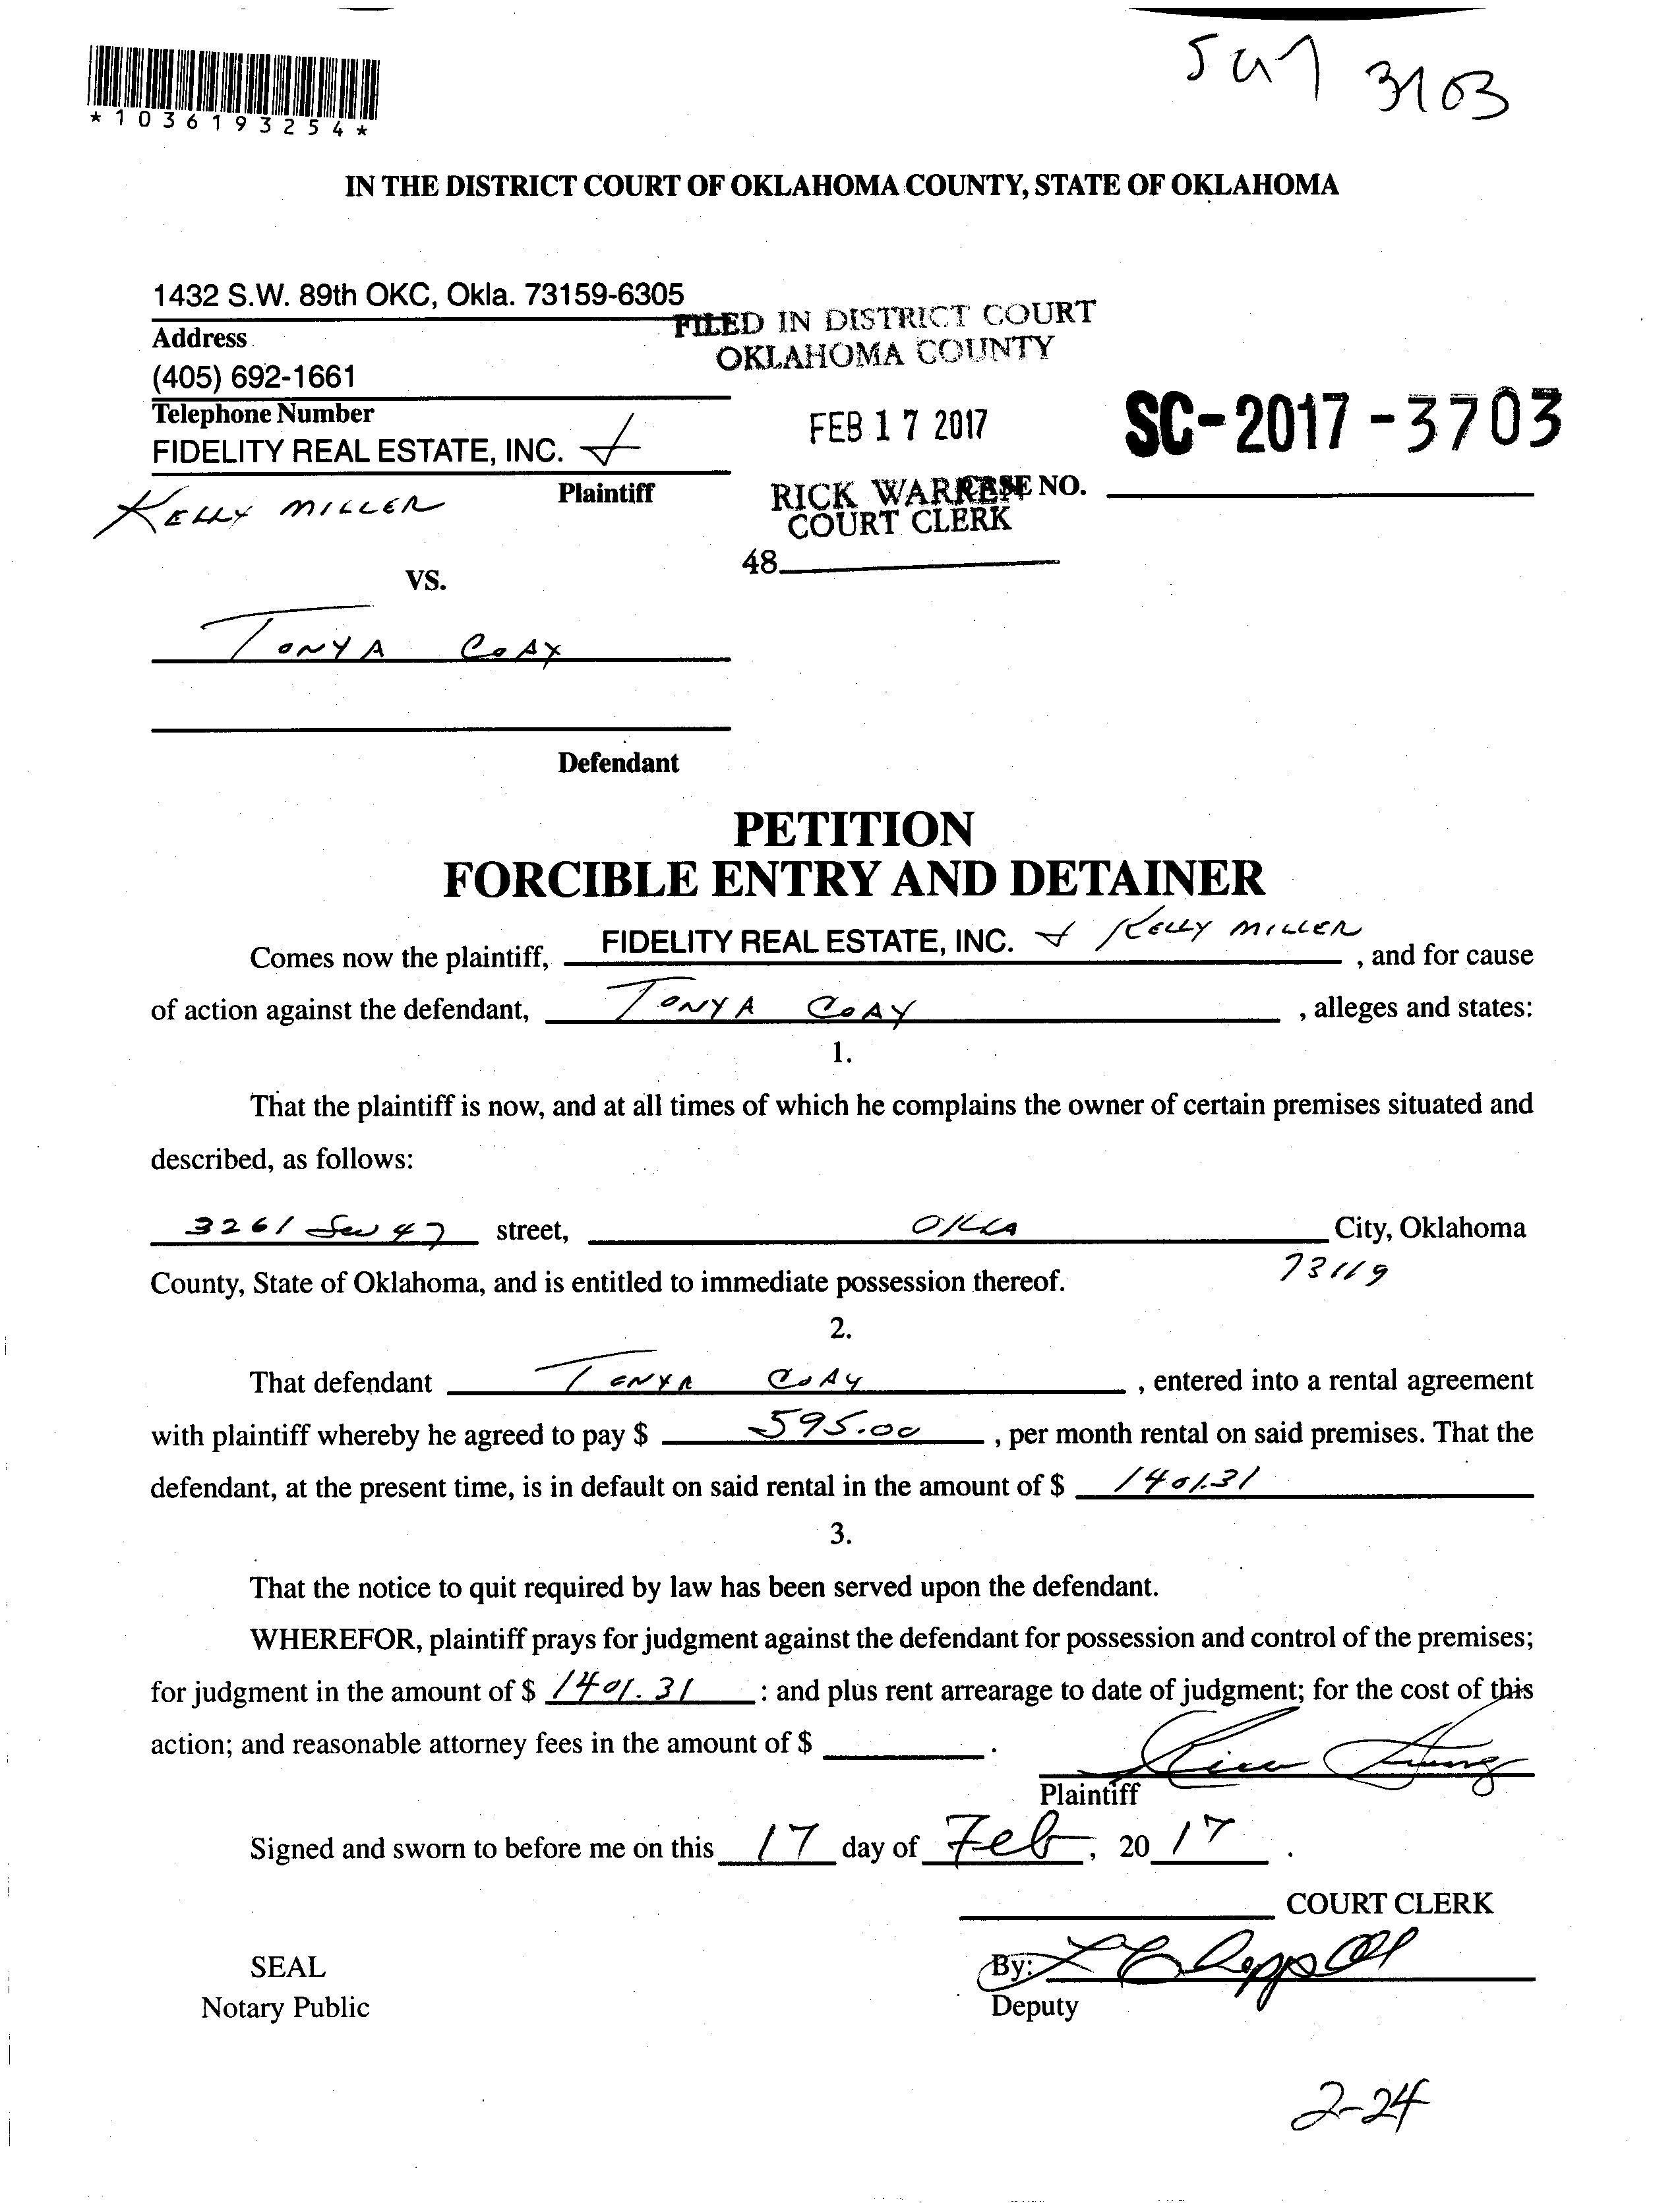 *1036193254*
3103
IN THE DISTRICT COURT OF OKLAHOMA COUNTY, STATE OF OKLAHOMA
1432 S.W. 89th OKC, Okla. 73159-6305
Address
(405) 692-1661
Telephone Number
FIDELITY REAL ESTATE, INC. &
KELLY MILLER
Plaintiff
FILED IN DISTRICT COURT
OKLAHOMA COUNTY
FEB 17 2017
RICK WARREN
COURT CLERK
48
SC-2017-3703
CASE NO.
VS.
TONYA COAY
Defendant
PETITION
FORCIBLE ENTRY AND DETAINER
Comes now the plaintiff, FIDELITY REAL ESTATE, INC. & KELLY MILLER, and for cause
of action against the defendant, TONYA COAY, alleges and states:
1.
That the plaintiff is now, and at all times of which he complains the owner of certain premises situated and
described, as follows:
3261 SW 47 street, OKLA City, Oklahoma
73119
County, State of Oklahoma, and is entitled to immediate possession thereof.
2.
That defendant TONYA COAY, entered into a rental agreement
with plaintiff whereby he agreed to pay $ 595.00, per month rental on said premises. That the
defendant, at the present time, is in default on said rental in the amount of $ 1401.31
3.
That the notice to quit required by law has been served upon the defendant.
WHEREFOR, plaintiff prays for judgment against the defendant for possession and control of the premises;
for judgment in the amount of $ 1401.31 : and plus rent arrearage to date of judgment; for the cost of this
action; and reasonable attorney fees in the amount of $ .
Plaintiff
Signed and sworn to before me on this 17 day of Feb, 20 17.
COURT CLERK
SEAL
By:
Notary Public
Deputy
2-24